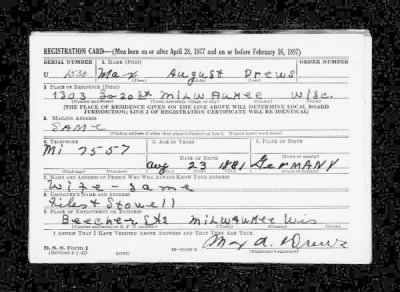 REGISTRATION CARD—(Men born on or after April 28, 1877 and on or before February 16, 1897)
SERIAL NUMBER 1. NAME (Print) ORDER NUMBER
U 1530 Max August Drews
(First) (Middle) (Last)
2. PLACE OF RESIDENCE (Print)
1203 So 20 St Milwaukee Wisc.
(Number and street) (Town, township, village, or city) (County) (State)
[THE PLACE OF RESIDENCE GIVEN ON THE LINE ABOVE WILL DETERMINE LOCAL BOARD
JURISDICTION; LINE 2 OF REGISTRATION CERTIFICATE WILL BE IDENTICAL]
3. MAILING ADDRESS
SAME
[Mailing address if other than place indicated on line 2. If same insert word same]
4. TELEPHONE 5. AGE IN YEARS 6. PLACE OF BIRTH
Mi 7557
DATE OF BIRTH
Aug 23 1881 GERMANY
(Mo.) (Day) (Yr.)
7. NAME AND ADDRESS OF PERSON WHO WILL ALWAYS KNOW YOUR ADDRESS
Wife - same
8. EMPLOYER'S NAME AND ADDRESS
Stowell
9. PLACE OF EMPLOYMENT OR BUSINESS
Becher Sts Milwaukee Wis
(Number and street or R. F. D. number) (Town) (County) (State)
I AFFIRM THAT I HAVE VERIFIED ABOVE ANSWERS AND THAT THEY ARE TRUE.
D. S. S. Form 1 Max A. Drews
(Revised 4-1-42) (over)